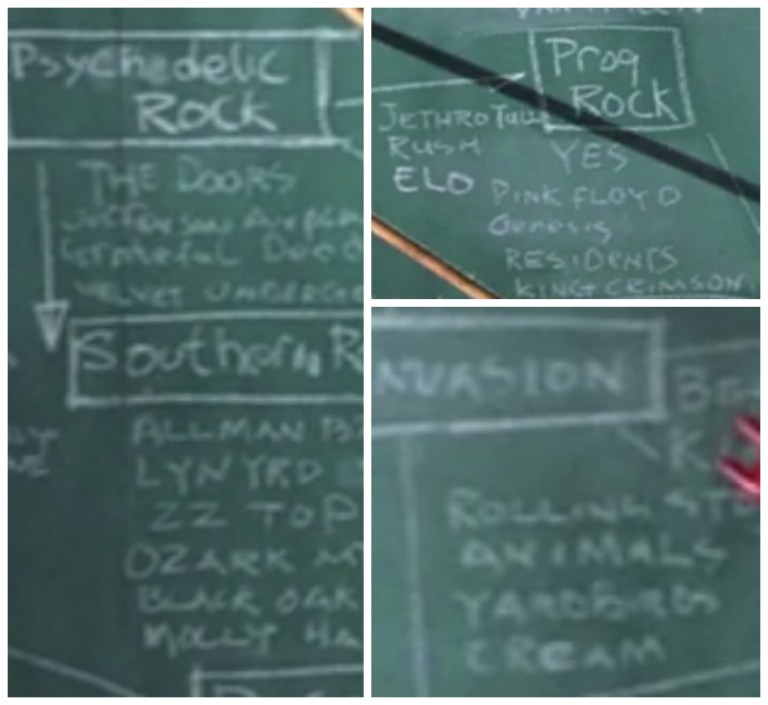 Psychedelic
ROCK
THE DOORS
Jefferson Airpla
Grateful Dead
VELVET UNDERGR
Southern R
ALLMAN B
LYNYRD
ZZ TOP
OZARK M
BLACK OAK
MOLLY HA
Prog
ROCK
JETHRO TULL
RUSH
ELO
YES
PINK FLOYD
Genesis
RESIDENTS
KING CRIMSON
NVASION
ROLLING STO
ANIMALS
YARDBIRDS
CREAM